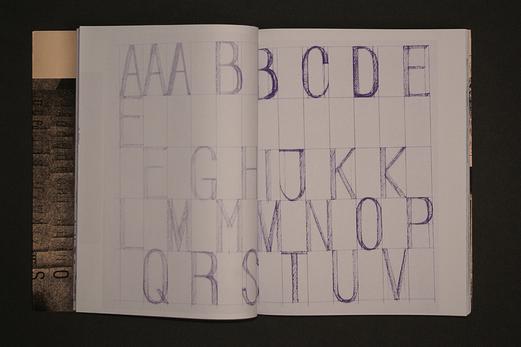 AAA B B C D E
E
F G H I J K K
L M M M N O P
Q R S T U V